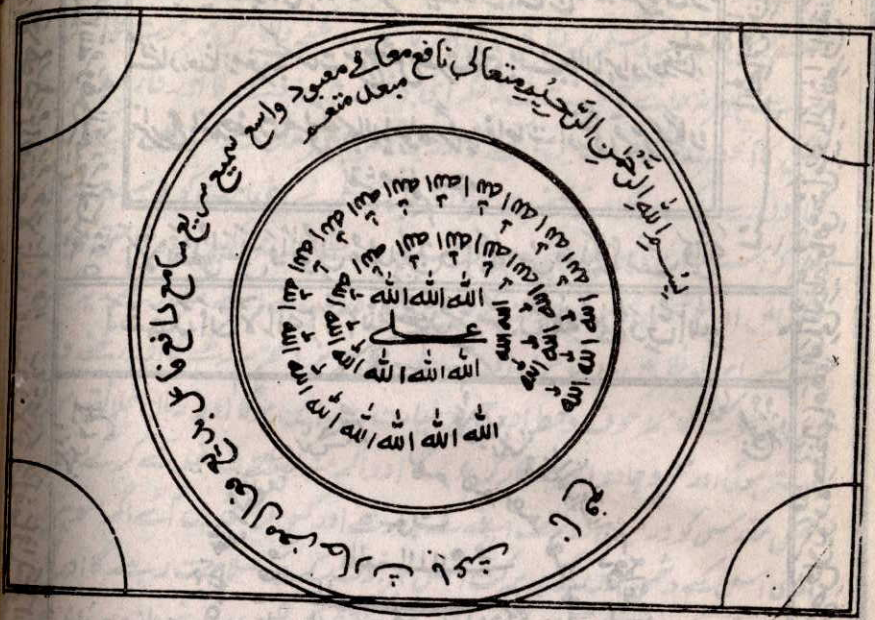 بسم الله الرحمن الرحيم متعالي نافع معافي معبود واسع سميع سريع سامع دافع فاعل بديع فعال معز
نافع
الله الله الله الله الله الله الله الله الله الله الله الله الله الله الله الله الله الله الله الله الله الله الله الله الله
الله الله الله الله الله الله الله الله الله الله الله الله الله الله الله الله الله الله الله
الله الله الله
الله الله الله
علي